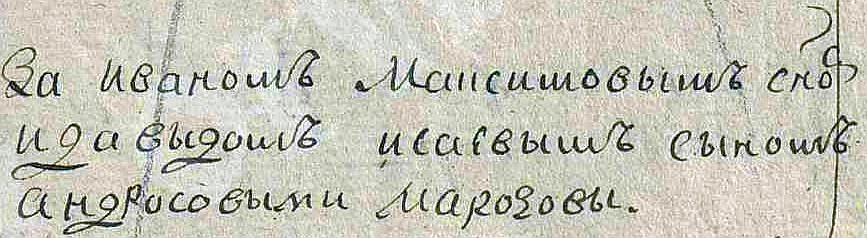 За иваномъ Максимовымъ сно
и давыдомъ исаевымъ сыномъ
андросовыми Марозовы.